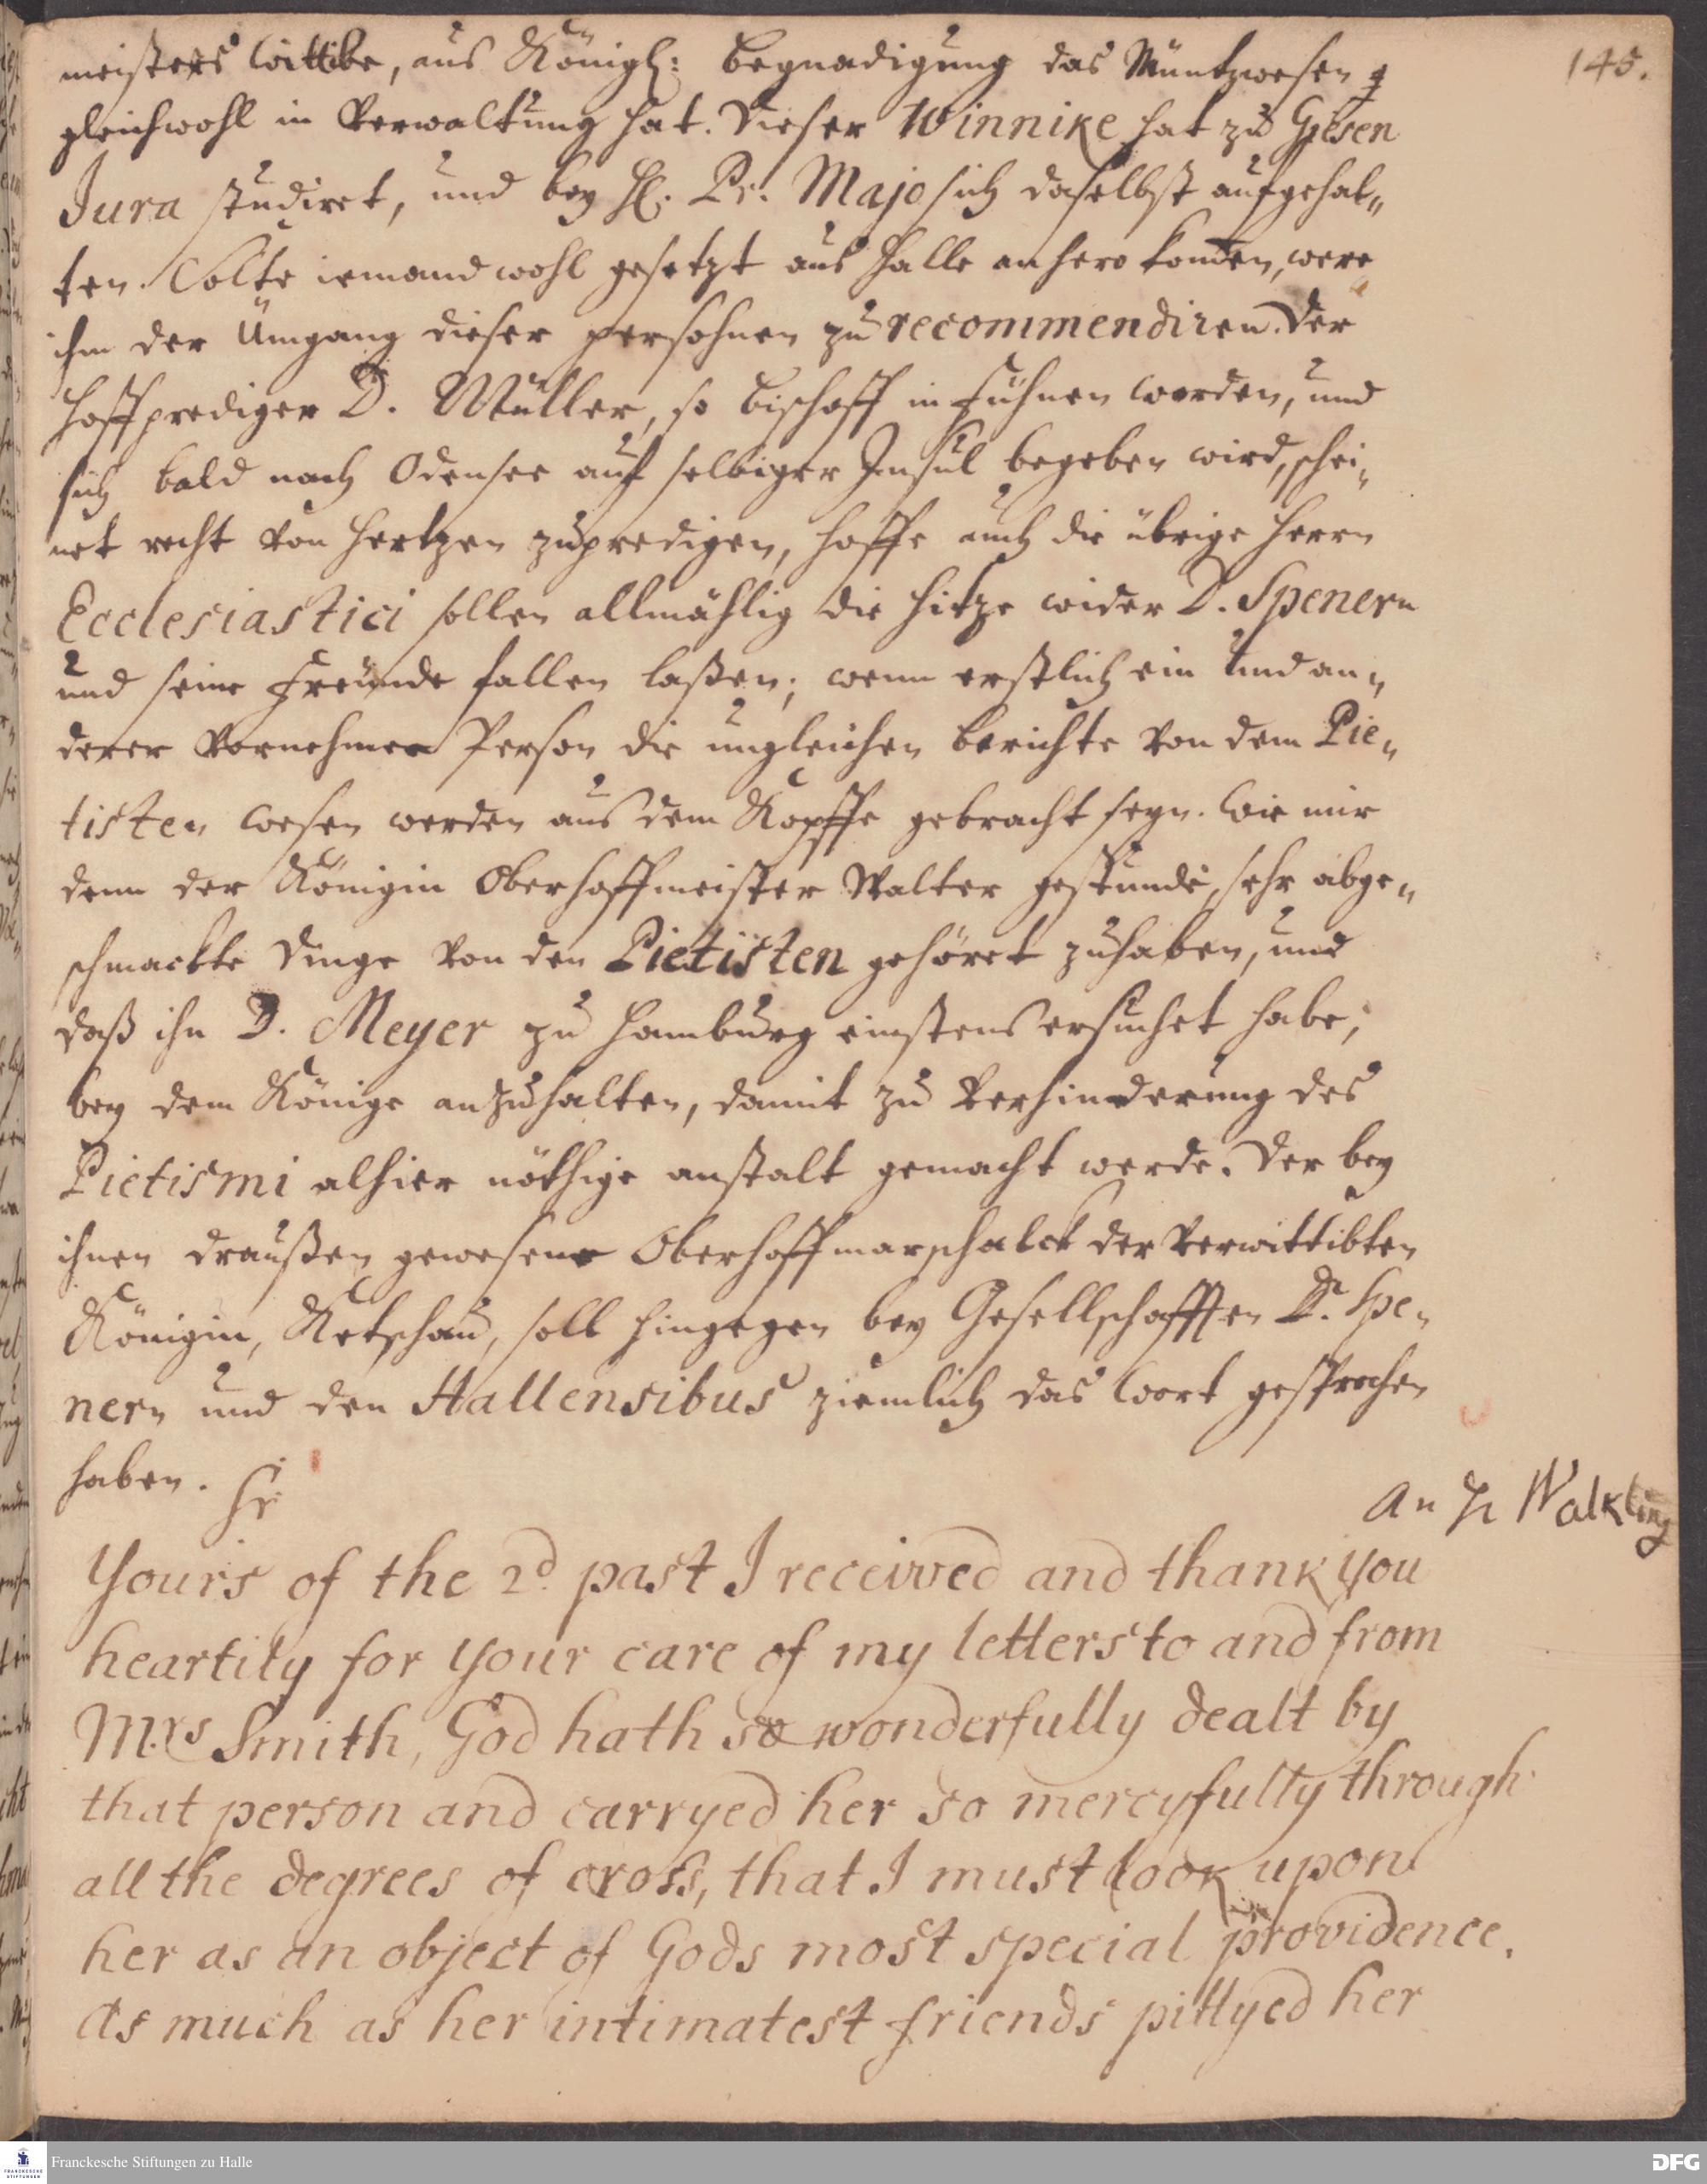 145.
meisters Wittibe, aus Königl: begnadigung das Müntzwesen
gleichwohl in Verwaltung hat. Dieser Winnike hat zu Giesen
Jura studiret, und bey H. Pr. Majo sich daselbst aufgehal„
ten. Solte iemand wohl gesetzt aus Halle anhero komen, were
ihm der Umgang dieser persohnen zu recommendiren. Der
Hoffprediger D. Müller, so Bischoff in Fühnen worden, und
sich bald nach Odensee auf selbiger Insul begeben wird, schei„
net recht von Hertzen zupredigen, hoffe auch die übrige Herrn
Ecclesiastici sollen allmählig die Hitze wider D. Spenern
und seine Freunde fallen laßen; wenn erstlich ein und an„
derer vornehmen Person die ungleichen berichte von dem Pie„
tisten wesen werden aus dem Kopffe gebracht seyn. Wie mir
denn der Königin Oberhoffmeister Walter gestunde, sehr abge„
schmackte Dinge von den Pietisten gehöret zuhaben, und
daß ihn D. Meyer zu Hamburg einstens ersuchet habe,
bey dem Könige anzuhalten, damit zu Verhinderung des
Pietismi alhier nöthige anstalt gemacht werde. Der bey
ihnen draußen gewesene Oberhoffmarschalck der Verwittibten
Königin, Ketschau, soll hingegen bey Gesellschafften D. Spe„
nern und den Hallensibus ziemlich das Wort gesprochen
haben.
An H Walkling
Sr
Yours of the 2d past I received and thank you
heartily for your care of my letters to and from
Mrs Smith, God hath so wonderfully dealt by
that person and carryed her so mercyfully through
all the degrees of cross, that I must look upon
her as an object of Gods most special providence.
As much as her intimatest friends pittyed her
Franckesche Stiftungen zu Halle
FRANCKESCHE STIFTUNGEN
DFG